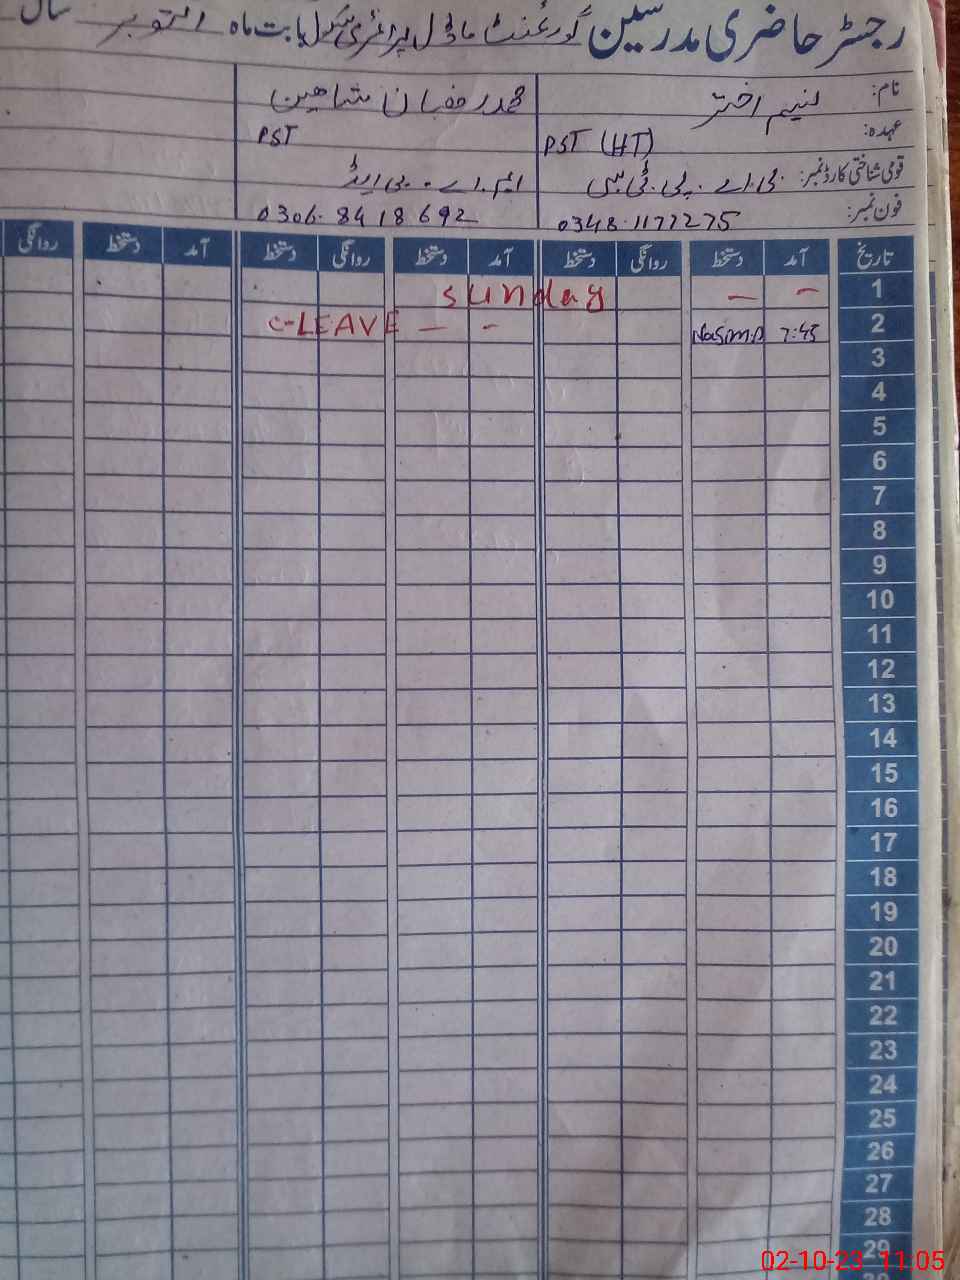 رجسٹر حاضری مدرسین گورنمنٹ ماڈل پرائمری سکول بابت ماہ اکتوبر سال
نام: نسیم اختر محمد رمضان شاھین
عہدہ: PST (HT) PST
قومی شناختی کارڈ نمبر: بی.اے.پی.ٹی.سی ایم.اے.بی ایڈ
فون نمبر: 0348-1177275 0306-8418692
تاریخ آمد دستخط روانگی دستخط آمد دستخط روانگی دستخط آمد دستخط روانگی
1 - - Sunday
2 7:45 Nasim.A - - C-LEAVE
3
4
5
6
7
8
9
10
11
12
13
14
15
16
17
18
19
20
21
22
23
24
25
26
27
28
29
02-10-23 11:05